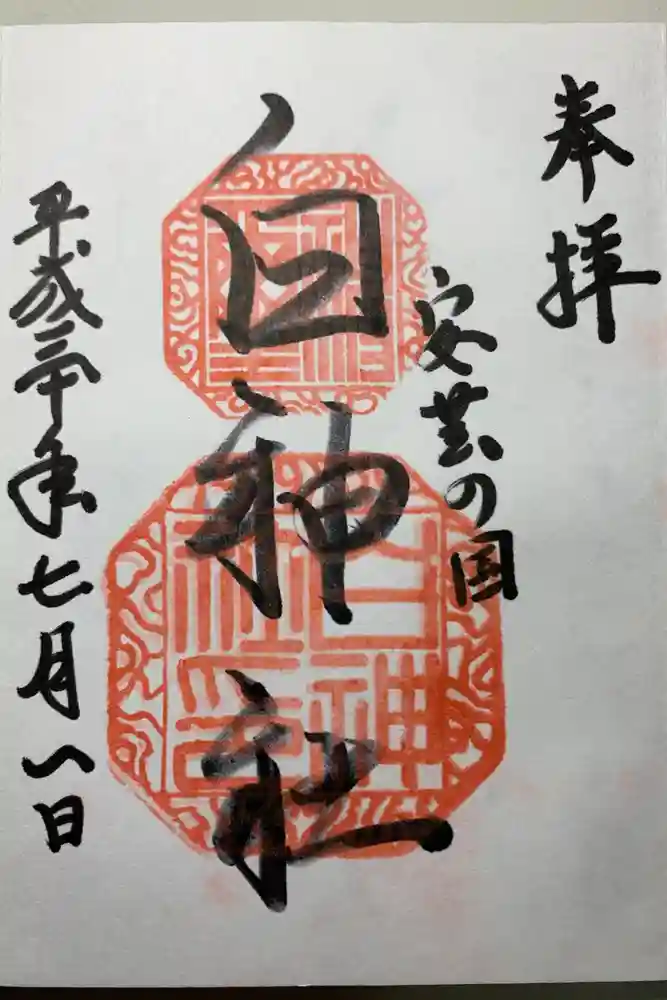 奉拝
安芸の国
白神社
平成三十年七月八日